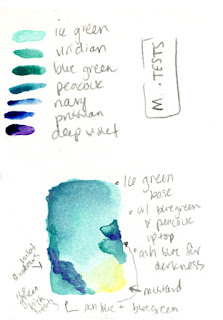 ice green
viridian
blue green
peacock
navy
prussian
deep violet
M. TESTS
• Ice green
base
• w/ bluegreen
& peacock
up top
• ash blue for
darkness
mustard
violet
shadows
green
ash blue + bluegreen